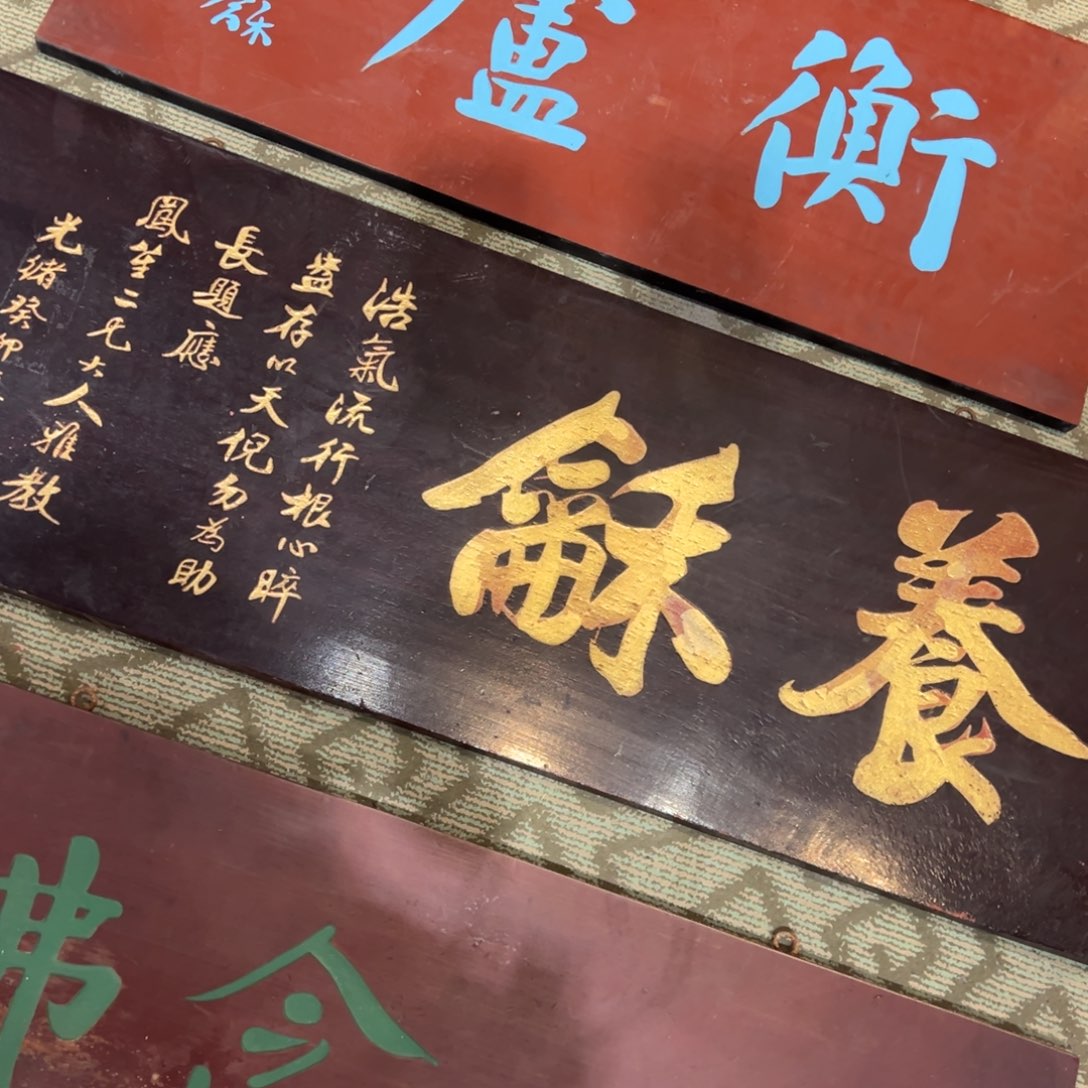 衡廬
養龢
浩氣流行根心睟
盎存以天倪勿為助
長題應
鳳笙二兄大人雅教
光緒癸卯
念佛